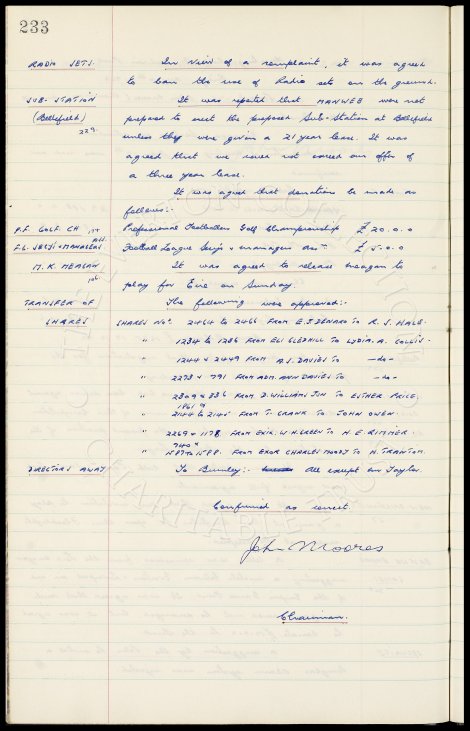 233
RADIO SETS. In view of a complaint, it was agreed
to ban the use of Radio sets on the ground.
SUB-STATION It was reported that MANWEB were not
(Bellefield) prepared to erect the proposed Sub-Station at Bellefield
229. unless they were given a 21 year lease. It was
agreed that we could not exceed our offer of
a three year lease.
It was agreed that donations be made as
follows:-
P.F. GOLF. CH Professional Footballers Golf Championship £20.0.0
F.L. SECY'S & MANAGERS Football League Secy's & managers £5.0.0
M. K. MEAGAN It was agreed to release Meagan to
play for Eire on Sunday.
TRANSFER OF The following were approved:-
SHARES SHARES Nos. 2464 to 2466 FROM E.J. DENARO to R.S. HALE.
" 1234 to 1236 FROM ELI GLEDHILL to LYDIA. A. COLLIS.
" 1244 & 2449 FROM A.S. DAVIES to -do-
" 2273 & 791 FROM ADM. ANN DAVIES to -do-
" 2309 & 836 FROM D. WILLIAMS JUN to ESTHER PRICE.
" 2144 to 2145 FROM T. CRANK to JOHN OWEN.
" 2269 & 1178 FROM EXIR. W.H. GREEN to H. E. RIMMER.
740
" 1587 to 1588. FROM EXOR CHARLES MOODY to H. TRANTOM.
DIRECTORS AWAY To Burnley:- All except Mr Taylor.
Confirmed as correct.
John Moores
Chairman.
CHARITABLE